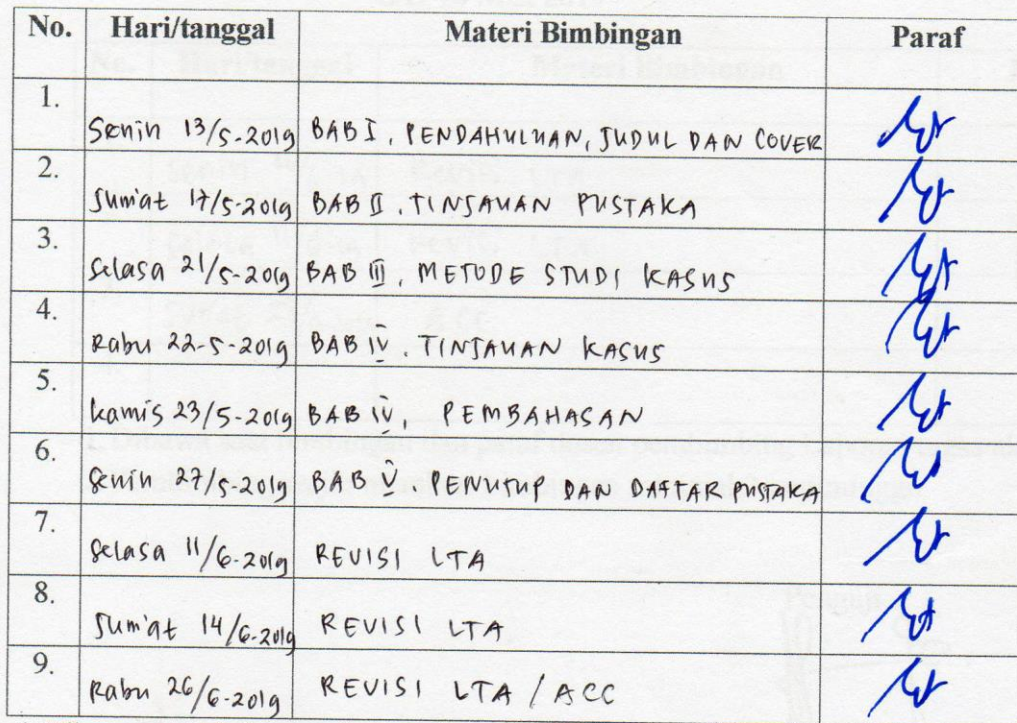 No. Hari/tanggal Materi Bimbingan Paraf
1. Senin 13/5-2019 BAB I. PENDAHULUAN, JUDUL DAN COVER
2. Jum'at 17/5-2019 BAB II. TINJAUAN PUSTAKA
3. Selasa 21/5-2019 BAB III. METODE STUDI KASUS
4. Rabu 22-5-2019 BAB IV. TINJAUAN KASUS
5. Kamis 23/5-2019 BAB IV. PEMBAHASAN
6. Senin 27/5-2019 BAB V. PENUTUP DAN DAFTAR PUSTAKA
7. Selasa 11/6-2019 REVISI LTA
8. Jum'at 14/6-2019 REVISI LTA
9. Rabu 26/6-2019 REVISI LTA / ACC